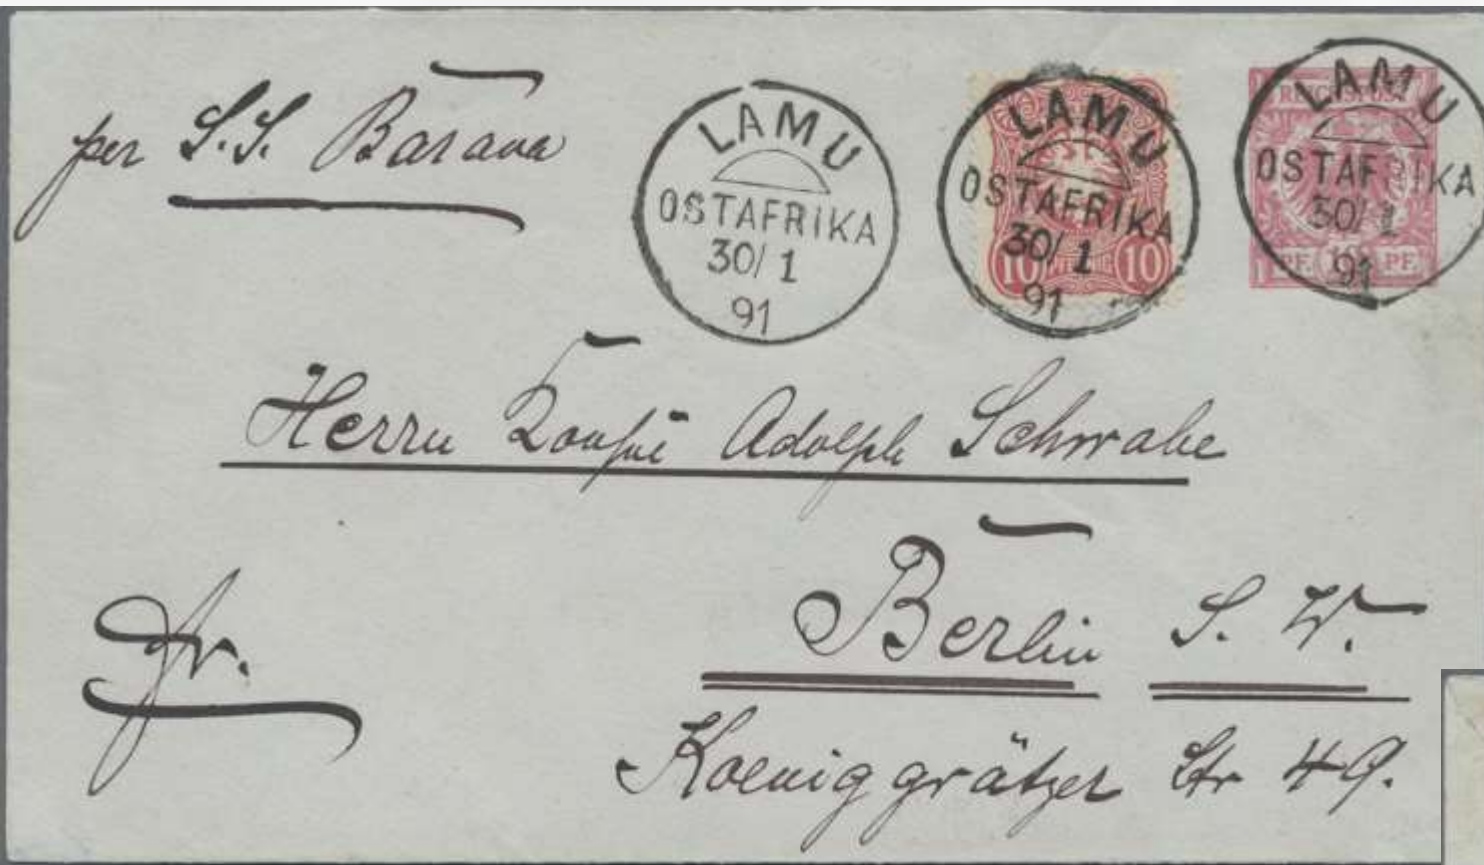 per S.S. Barawa
LAMU
OSTAFRIKA
30/1
91
LAMU
OSTAFRIKA
30/1
91
10 PFENNIG 10
LAMU
OSTAFRIKA
30/1
91
REICHSPOST
PF. 10 PF.
Herrn Adolph Schwabe
Berlin S. W.
fr.
Koeniggrätzer Str 49.